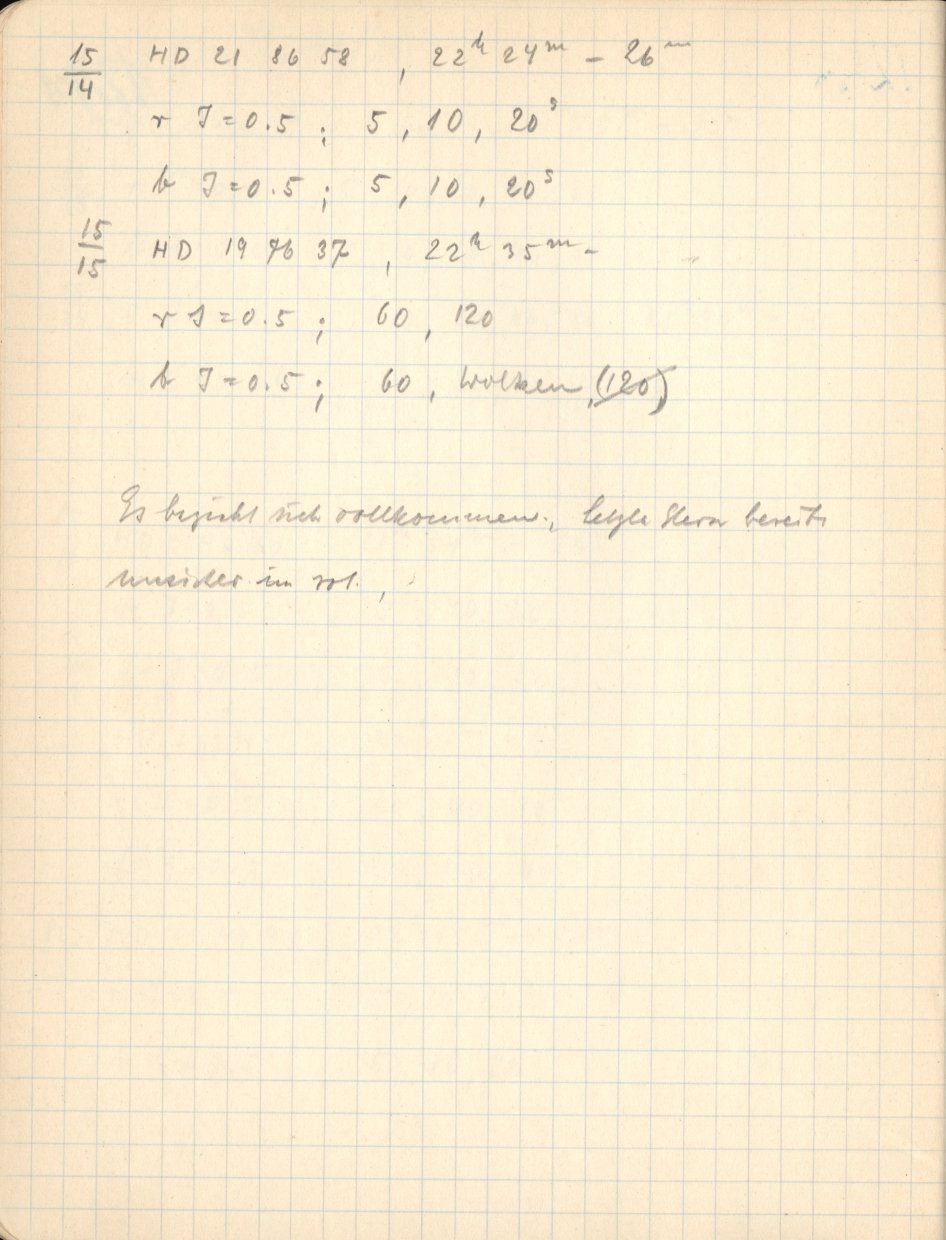 15/14 HD 21 86 58 , 22h 24m – 26m
r I = 0.5 ; 5 , 10 , 20s
b I = 0.5 ; 5 , 10 , 20s
15/15 HD 19 76 37 , 22h 35m –
r I = 0.5 ; 60 , 120
b I = 0.5 ; 60 , Wolken , (120)
Es bezieht sich vollkommen., letzte Stern bereits
unsicher im rot. ,